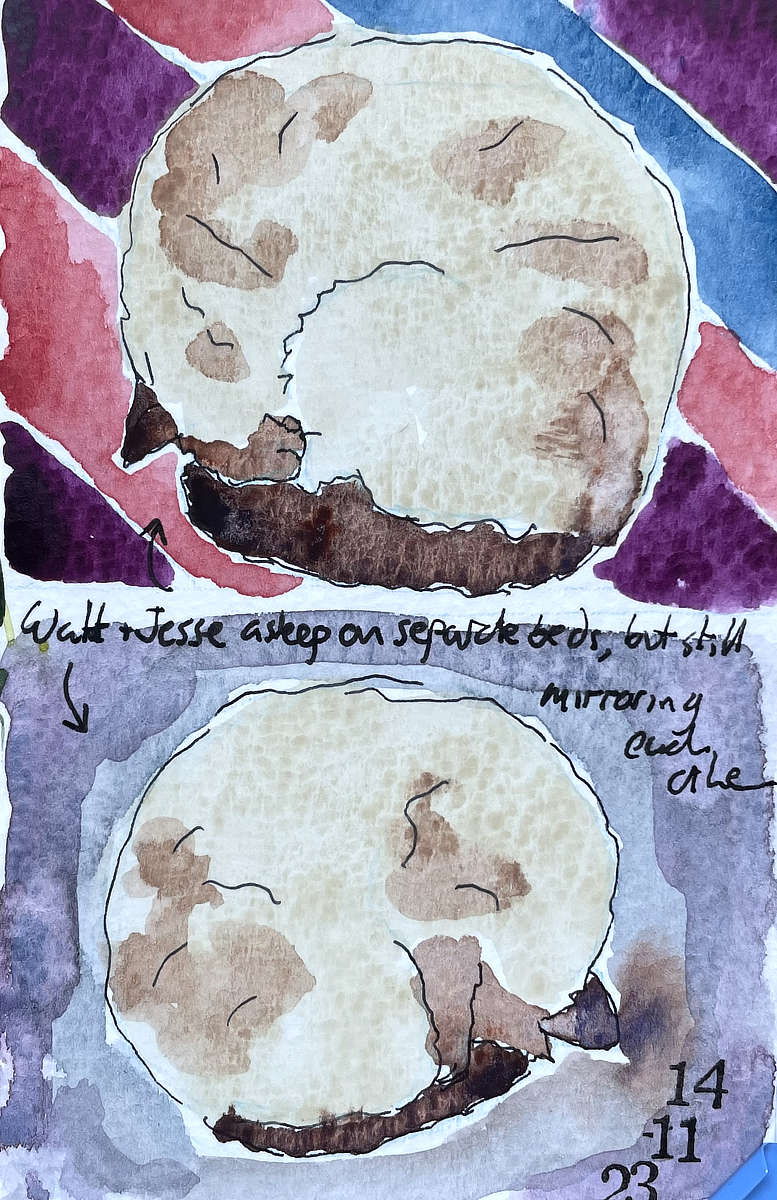 Watt + Jesse asleep on separate beds, but still
mirroring
each
othe
14
-11
23